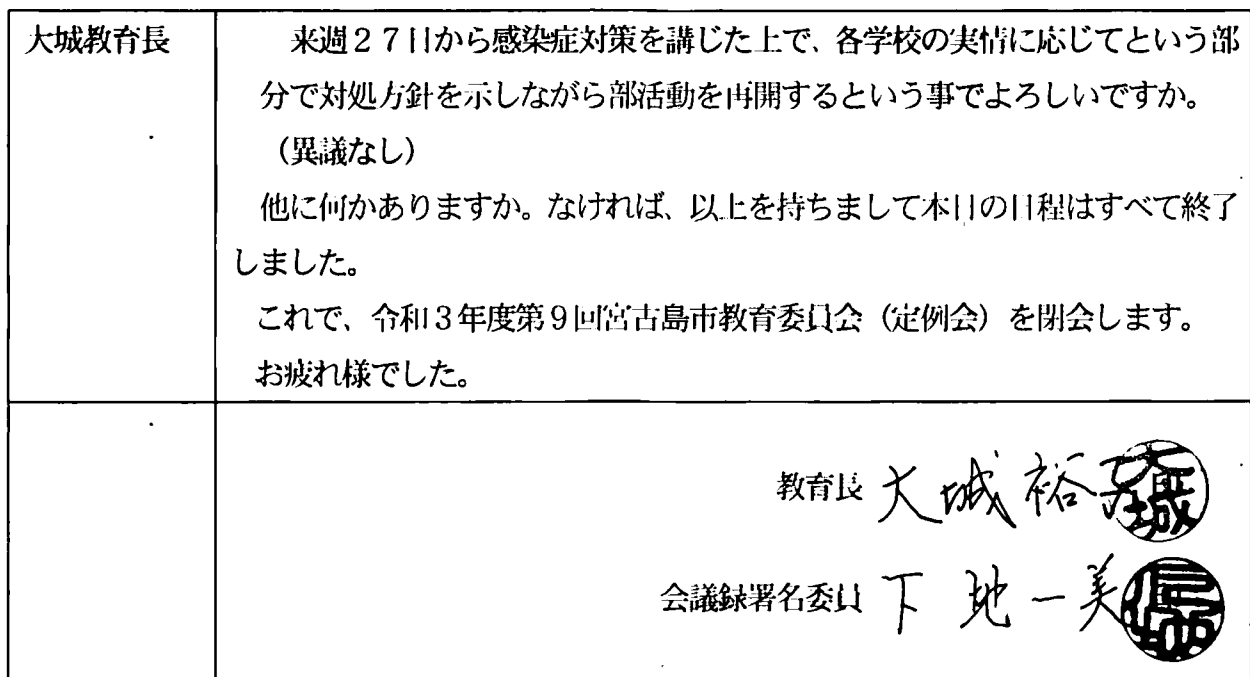 大城教育長
来週27日から感染症対策を講じた上で、各学校の実情に応じてという部
分で対処方針を示しながら部活動を再開するという事でよろしいですか。
（異議なし）
他に何かありますか。なければ、以上を持ちまして本日の日程はすべて終了
しました。
これで、令和3年度第9回宮古島市教育委員会（定例会）を閉会します。
お疲れ様でした。
教育長 大城裕子 大城
会議録署名委員 下地一美